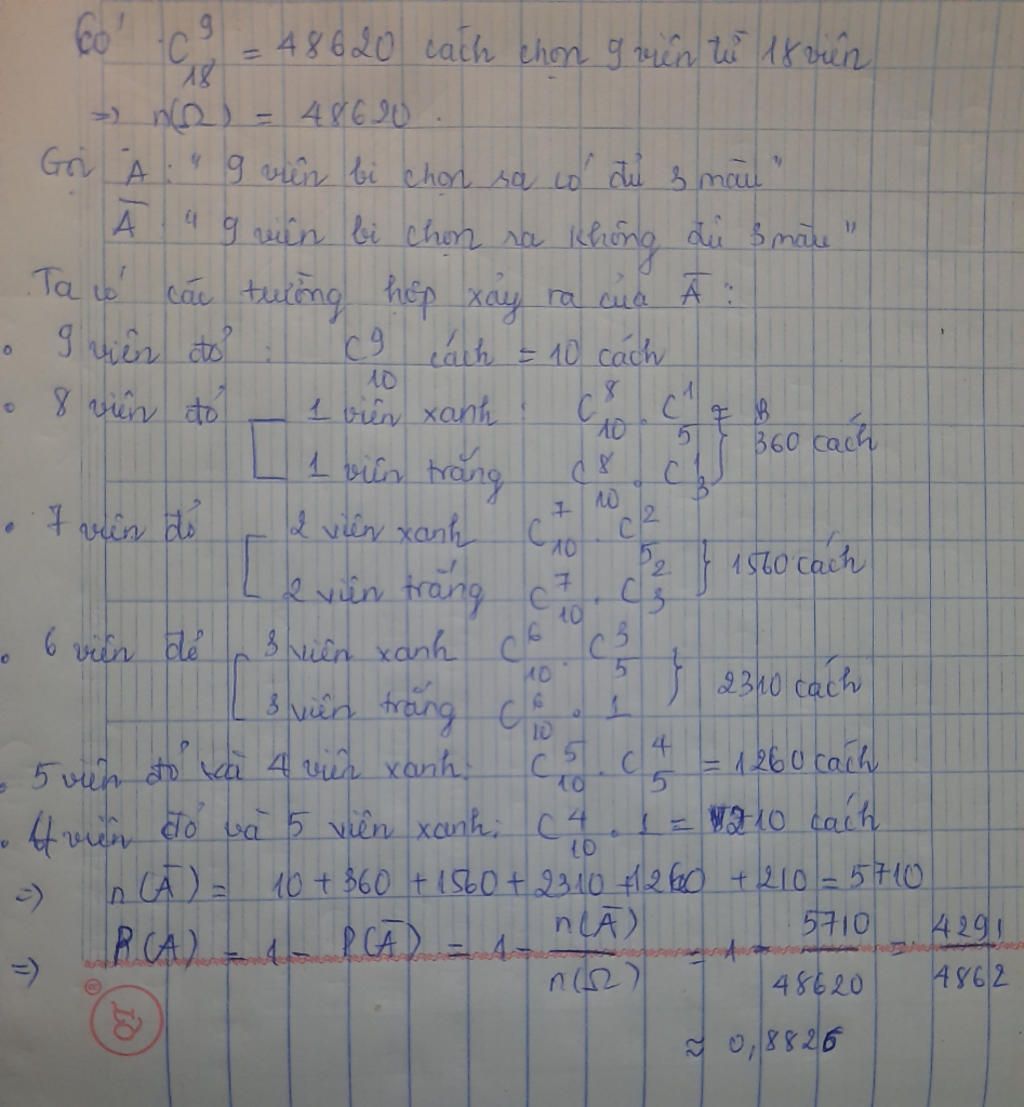 Có C⁹₁₈ = 48620 cách chọn 9 viên từ 18 viên
=> n(Ω) = 48620.
Gọi A: "9 viên bi chọn ra có đủ 3 màu"
A̅ "9 viên bi chọn ra không đủ 3 màu"
Ta có các trường hợp xảy ra của A̅:
• 9 viên đỏ: C⁹₁₀ cách = 10 cách
• 8 viên đỏ [ 1 viên xanh: C⁸₁₀ . C¹₅ =
1 viên trắng C⁸₁₀ . C¹₃ } 360 cách
• 7 viên đỏ [ 2 viên xanh C⁷₁₀ . C²₅
2 viên trắng C⁷₁₀ . C²₃ } 1560 cách
• 6 viên đỏ [ 3 viên xanh C⁶₁₀ . C³₅
3 viên trắng C⁶₁₀ . 1 } 2310 cách
• 5 viên đỏ và 4 viên xanh: C⁵₁₀ . C⁴₅ = 1260 cách
• 4 viên đỏ và 5 viên xanh: C⁴₁₀ . 1 = 210 cách
=> n(A̅) = 10 + 360 + 1560 + 2310 + 1260 + 210 = 5710
=> P(A) = 1 - P(A̅) = 1 - n(A̅)/n(Ω) = 1 - 5710/48620 = 4291/4862
≈ 0,8826